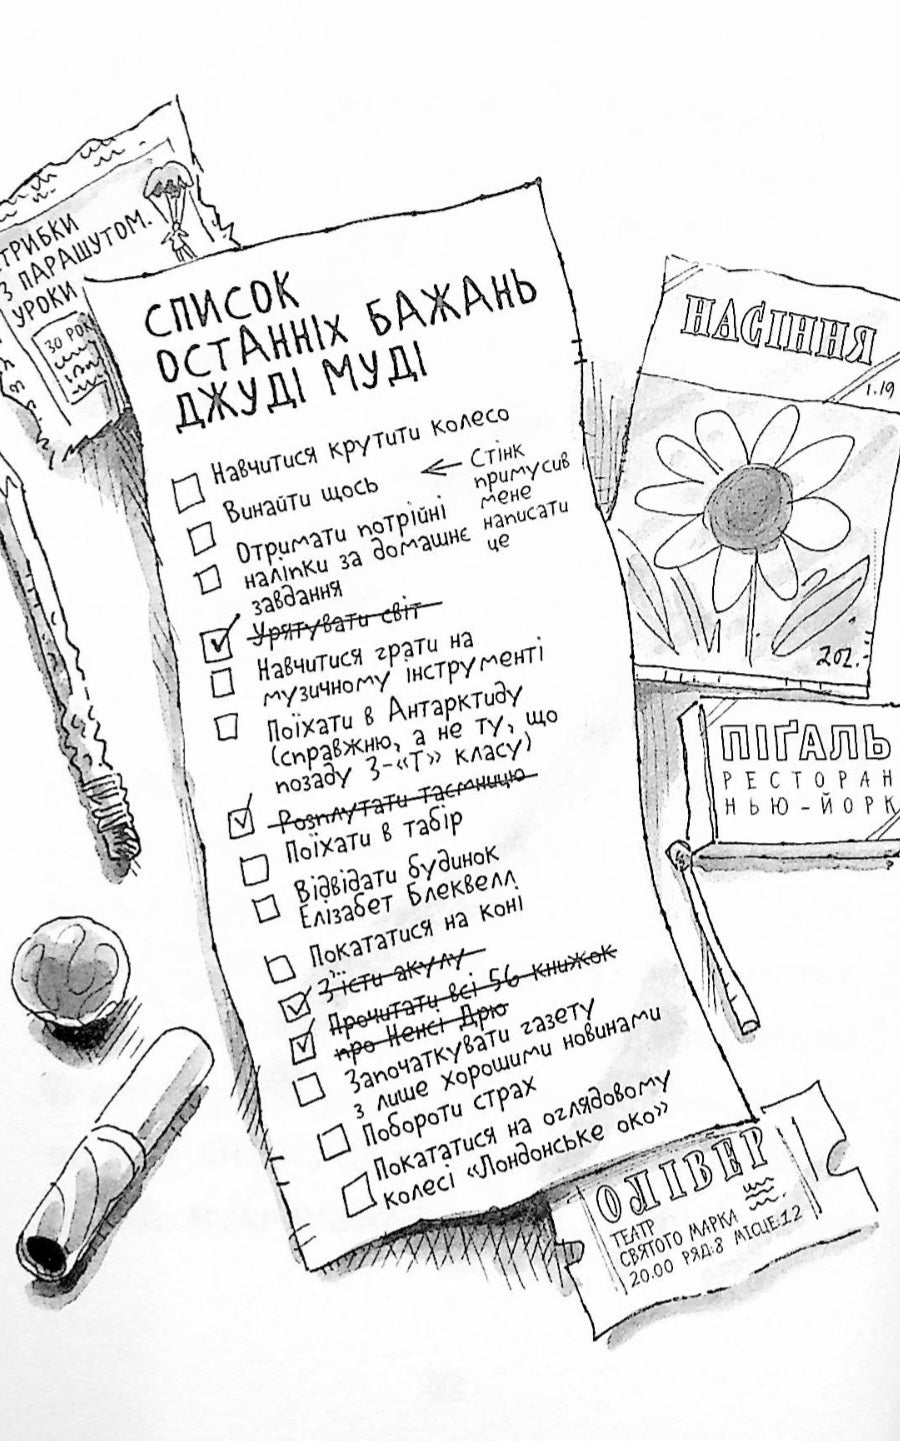 ТРИБКИ
З ПАРАШУТОМ.
УРОКИ
30 РОК
СПИСОК
ОСТАННІХ БАЖАНЬ
ДЖУДІ МУДІ
Навчитися крутити колесо
Винайти щось
← Стінк
примусив
мене
написати
це
Отримати потрійні
наліпки за домашнє
завдання
Урятувати світ
Навчитися грати на
музичному інструменті
Поїхати в Антарктиду
(справжню, а не ту, що
позаду 3-«Т» класу)
Розплутати таємницю
Поїхати в табір
Відвідати будинок
Елізабет Блеквелл
Покататися на коні
З'їсти акулу
Прочитати всі 56 книжок
про Ненсі Дрю
Започаткувати газету
з лише хорошими новинами
Побороти страх
Покататися на оглядовому
колесі «Лондонське око»
НАСІННЯ
1.19
202.
ПІҐАЛЬ
РЕСТОРАН
НЬЮ-ЙОРК
ОЛІВЕР
ТЕАТР
СВЯТОГО МАРКА
20.00 РЯД:8 МІСЦЕ:12